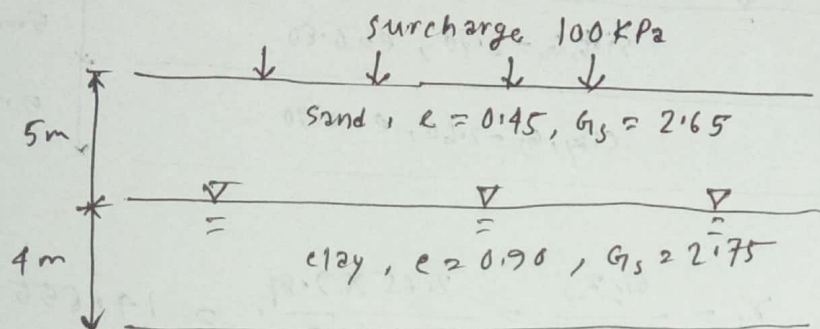 surcharge 100 KPa
5m
sand, e = 0.45, Gs = 2.65
4m
clay, e = 0.90, Gs = 2.75